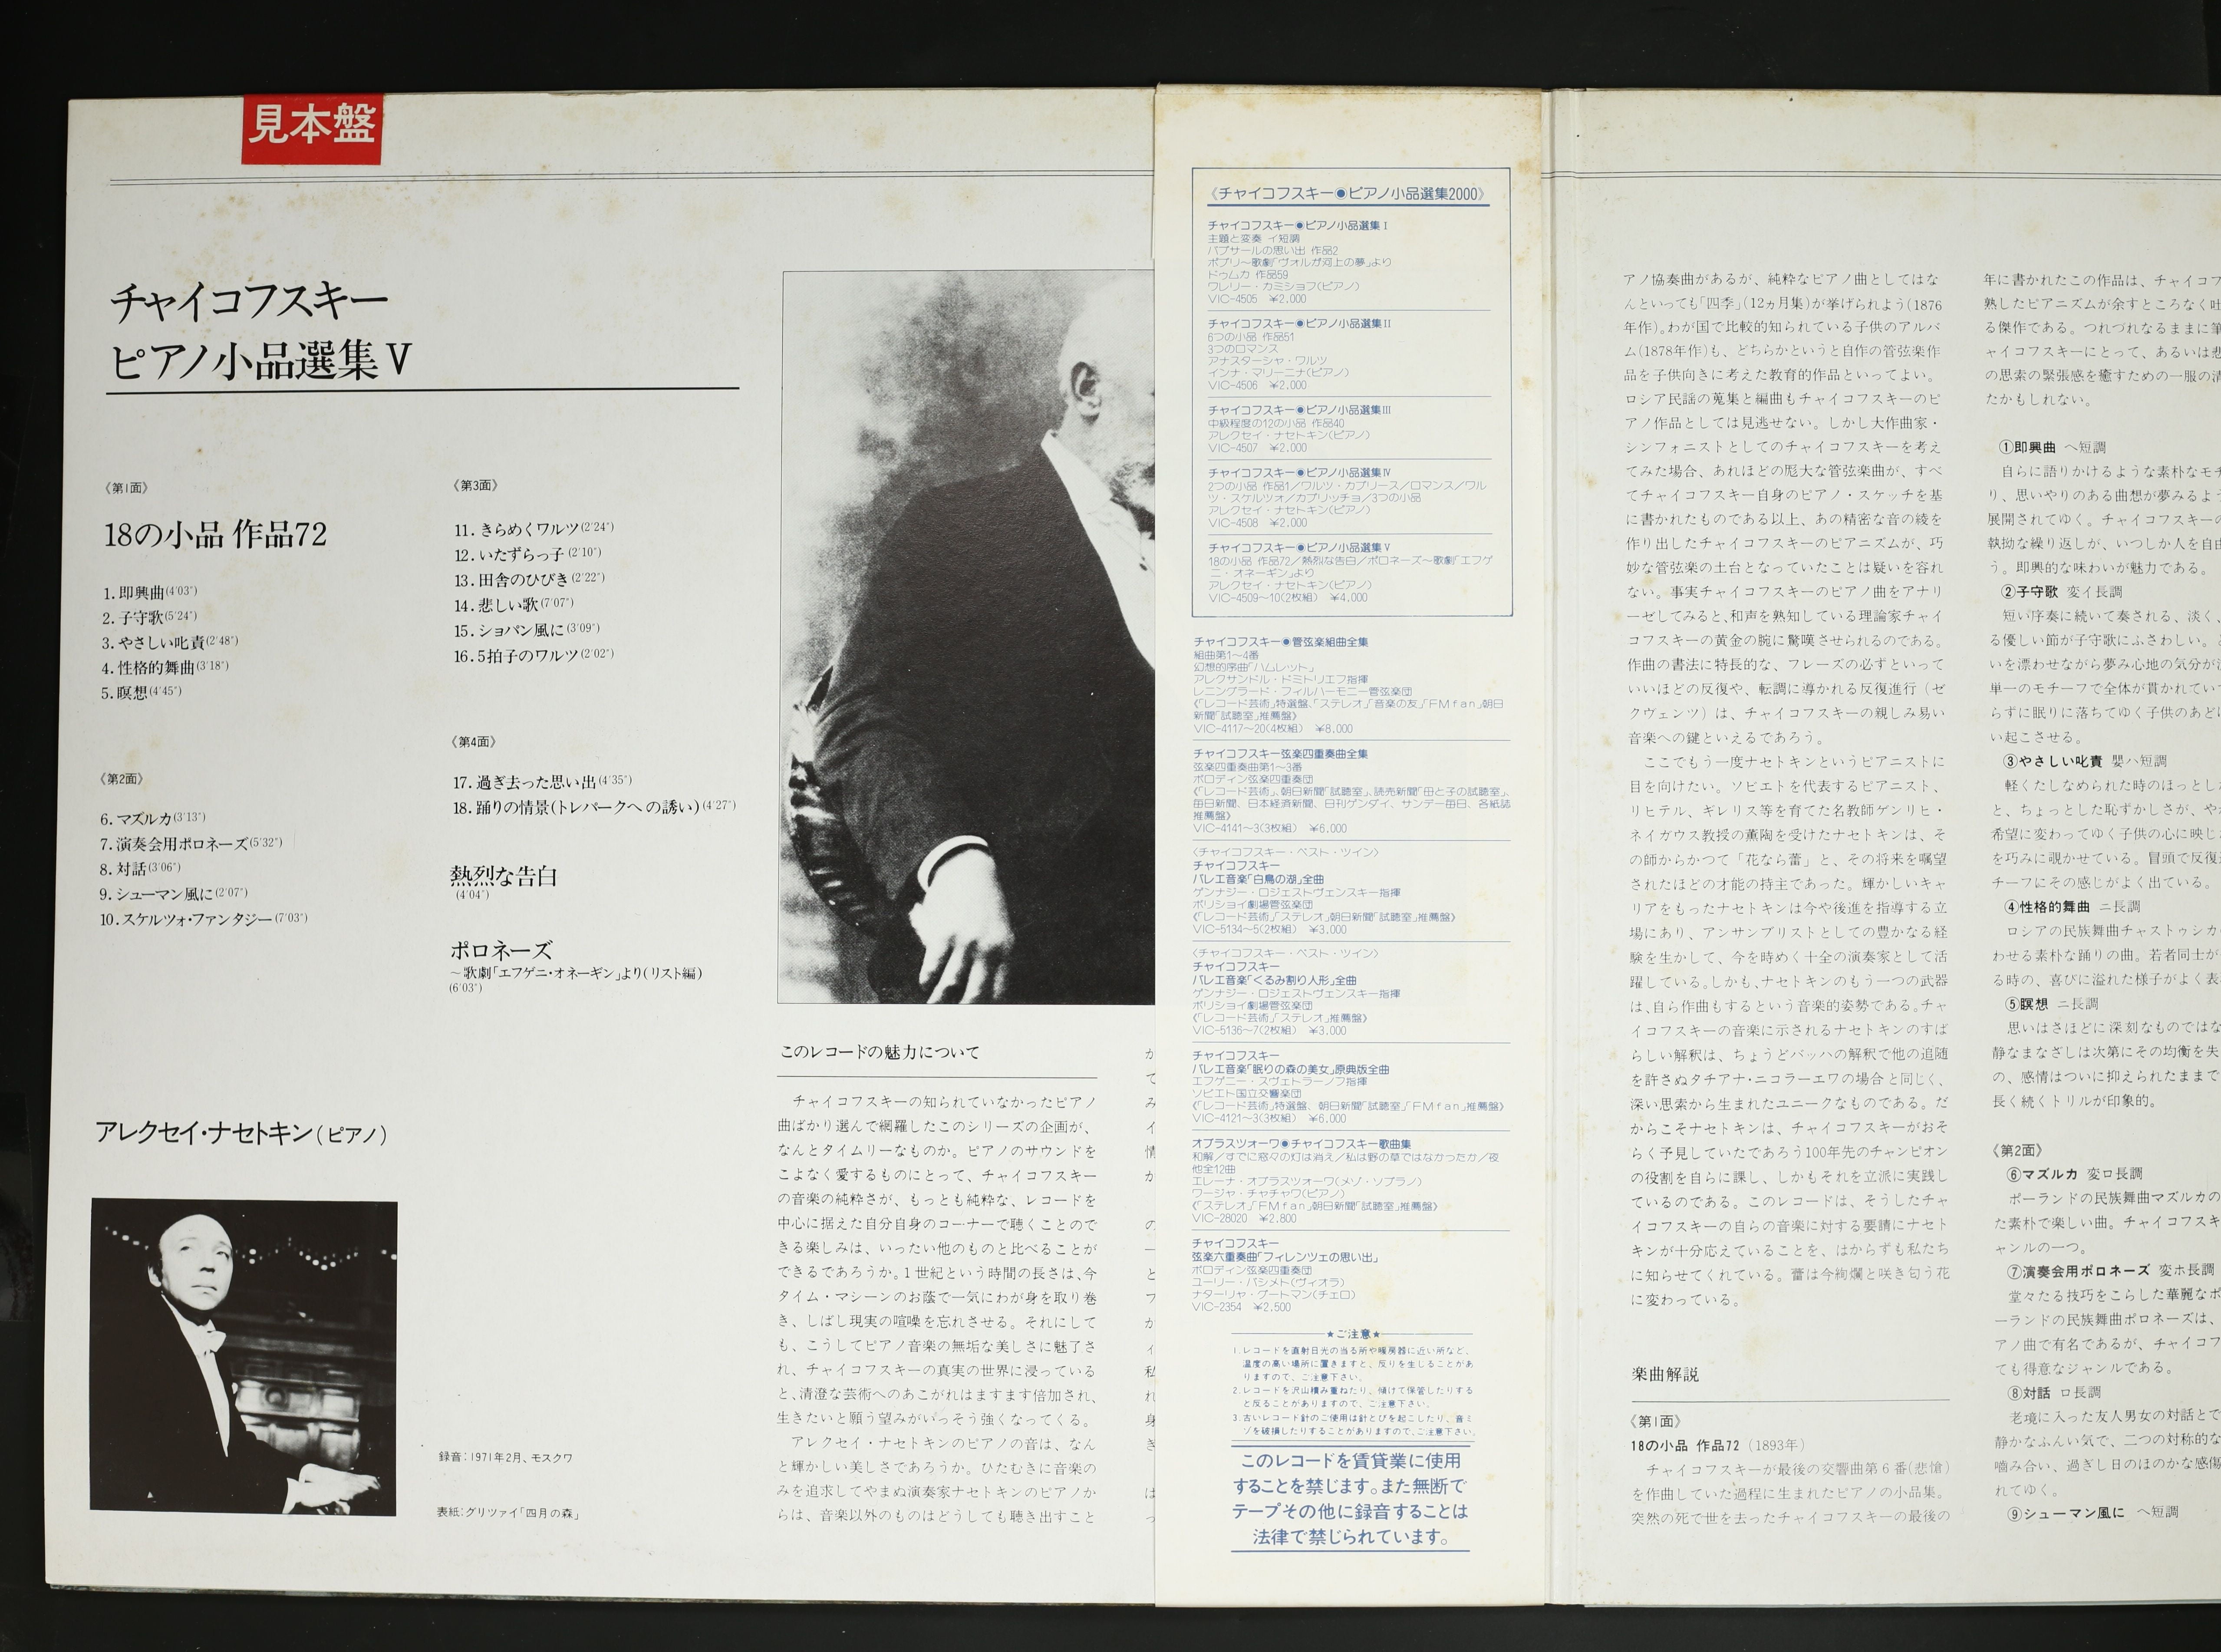 見本盤
チャイコフスキー
ピアノ小品選集 V
《第1面》
18の小品 作品72
1. 即興曲(4′03″)
2. 子守歌(5′24″)
3. やさしい叱責(2′48″)
4. 性格的舞曲(3′18″)
5. 瞑想(4′45″)
《第2面》
6. マズルカ(3′13″)
7. 演奏会用ポロネーズ(5′32″)
8. 対話(3′06″)
9. シューマン風に(2′07″)
10. スケルツォ・ファンタジー(7′03″)
《第3面》
11. きらめくワルツ(2′24″)
12. いたずらっ子(2′10″)
13. 田舎のひびき(2′22″)
14. 悲しい歌(7′07″)
15. ショパン風に(3′09″)
16. 5拍子のワルツ(2′02″)
《第4面》
17. 過ぎ去った思い出(4′35″)
18. 踊りの情景(トレパークへの誘い)(4′27″)
熱烈な告白
(4′04″)
ポロネーズ
～歌劇「エフゲニ・オネーギン」より(リスト編)
(6′03″)
アレクセイ・ナセトキン(ピアノ)
録音：1971年2月、モスクワ
表紙：グリツァイ「四月の森」
このレコードの魅力について
チャイコフスキーの知られていなかったピアノ
曲ばかり選んで網羅したこのシリーズの企画が、
なんとタイムリーなものか。ピアノのサウンドを
こよなく愛するものにとって、チャイコフスキー
の音楽の純粋さが、もっとも純粋な、レコードを
中心に据えた自分自身のコーナーで聴くことので
きる楽しみは、いったい他のものと比べることが
できるであろうか。1世紀という時間の長さは、今
タイム・マシーンのお蔭で一気にわが身を取り巻
き、しばし現実の喧噪を忘れさせる。それにして
も、こうしてピアノ音楽の無垢な美しさに魅了さ
れ、チャイコフスキーの真実の世界に浸っている
と、清澄な芸術へのあこがれはますます倍加され、
生きたいと願う望みがいっそう強くなってくる。
アレクセイ・ナセトキンのピアノの音は、なん
と輝かしい美しさであろうか。ひたむきに音楽の
みを追求してやまぬ演奏家ナセトキンのピアノか
らは、音楽以外のものはどうしても聴き出すこと
《チャイコフスキー◉ピアノ小品選集2000》
チャイコフスキー◉ピアノ小品選集 I
主題と変奏 イ短調
ハプサールの思い出 作品2
ポプリ～歌劇「ヴォルガ河上の夢」より
ドゥムカ 作品59
ワレリー・カミショフ(ピアノ)
VIC-4505 ¥2,000
チャイコフスキー◉ピアノ小品選集 II
6つの小品 作品51
3つのロマンス
アナスターシャ・ワルツ
インナ・マリーニナ(ピアノ)
VIC-4506 ¥2,000
チャイコフスキー◉ピアノ小品選集 III
中級程度の12の小品 作品40
アレクセイ・ナセトキン(ピアノ)
VIC-4507 ¥2,000
チャイコフスキー◉ピアノ小品選集 IV
2つの小品 作品1／ワルツ・カプリース／ロマンス／ワル
ツ・スケルツォ／カプリッチョ／3つの小品
アレクセイ・ナセトキン(ピアノ)
VIC-4508 ¥2,000
チャイコフスキー◉ピアノ小品選集 V
18の小品 作品72／熱烈な告白／ポロネーズ～歌劇「エフゲ
ニ・オネーギン」より
アレクセイ・ナセトキン(ピアノ)
VIC-4509～10(2枚組) ¥4,000
チャイコフスキー◉管弦楽組曲全集
組曲第1～4番
幻想的序曲「ハムレット」
アレクサンドル・ドミトリエフ指揮
レニングラード・フィルハーモニー管弦楽団
《「レコード芸術」特選盤、「ステレオ」「音楽の友」「FMfan」朝日
新聞「試聴室」推薦盤》
VIC-4117～20(4枚組) ¥8,000
チャイコフスキー弦楽四重奏曲全集
弦楽四重奏曲第1～3番
ボロディン弦楽四重奏団
《「レコード芸術」、朝日新聞「試聴室」、読売新聞「母と子の試聴室」、
毎日新聞、日本経済新聞、日刊ゲンダイ、サンデー毎日、各紙誌
推薦盤》
VIC-4141～3(3枚組) ¥6,000
〈チャイコフスキー・ベスト・ツイン〉
チャイコフスキー
バレエ音楽「白鳥の湖」全曲
ゲンナジー・ロジェストヴェンスキー指揮
ボリショイ劇場管弦楽団
《「レコード芸術」「ステレオ」朝日新聞「試聴室」推薦盤》
VIC-5134～5(2枚組) ¥3,000
〈チャイコフスキー・ベスト・ツイン〉
チャイコフスキー
バレエ音楽「くるみ割り人形」全曲
ゲンナジー・ロジェストヴェンスキー指揮
ボリショイ劇場管弦楽団
《「レコード芸術」「ステレオ」推薦盤》
VIC-5136～7(2枚組) ¥3,000
チャイコフスキー
バレエ音楽「眠りの森の美女」原典版全曲
エフゲニー・スヴェトラーノフ指揮
ソビエト国立交響楽団
《「レコード芸術」特選盤、朝日新聞「試聴室」「FMfan」推薦盤》
VIC-4121～3(3枚組) ¥6,000
オブラスツォーワ◉チャイコフスキー歌曲集
和解／すでに窓々の灯は消え／私は野の草ではなかったか／夜
他全12曲
エレーナ・オブラスツォーワ(メゾ・ソプラノ)
ワージャ・チャチャワ(ピアノ)
《「ステレオ」「FMfan」朝日新聞「試聴室」推薦盤》
VIC-28020 ¥2,800
チャイコフスキー
弦楽六重奏曲「フィレンツェの思い出」
ボロディン弦楽四重奏団
ユーリー・バシメト(ヴィオラ)
ナターリャ・グートマン(チェロ)
VIC-2354 ¥2,500
★ご注意★
1. レコードを直射日光の当る所や暖房器に近い所など、
温度の高い場所に置きますと、反りを生じることがあ
りますので、ご注意下さい。
2. レコードを沢山積み重ねたり、傾けて保管したりする
と反ることがありますので、ご注意下さい。
3. 古いレコード針のご使用は針とびを起こしたり、音ミ
ゾを破損したりすることがありますので、ご注意下さい。
このレコードを賃貸業に使用
することを禁じます。また無断で
テープその他に録音することは
法律で禁じられています。
アノ協奏曲があるが、純粋なピアノ曲としてはな
んといっても「四季」(12ヵ月集)が挙げられよう(1876
年作)。わが国で比較的知られている子供のアルバ
ム(1878年作)も、どちらかというと自作の管弦楽作
品を子供向きに考えた教育的作品といってよい。
ロシア民謡の蒐集と編曲もチャイコフスキーのピ
アノ作品としては見逃せない。しかし大作曲家・
シンフォニストとしてのチャイコフスキーを考え
てみた場合、あれほどの厖大な管弦楽曲が、すべ
てチャイコフスキー自身のピアノ・スケッチを基
に書かれたものである以上、あの精密な音の綾を
作り出したチャイコフスキーのピアニズムが、巧
妙な管弦楽の土台となっていたことは疑いを容れ
ない。事実チャイコフスキーのピアノ曲をアナリ
ーゼしてみると、和声を熟知している理論家チャイ
コフスキーの黄金の腕に驚嘆させられるのである。
作曲の書法に特長的な、フレーズの必ずといって
いいほどの反復や、転調に導かれる反復進行（ゼ
クヴェンツ）は、チャイコフスキーの親しみ易い
音楽への鍵といえるであろう。
ここでもう一度ナセトキンというピアニストに
目を向けたい。ソビエトを代表するピアニスト、
リヒテル、ギレリス等を育てた名教師ゲンリヒ・
ネイガウス教授の薫陶を受けたナセトキンは、そ
の師からかつて「花なら蕾」と、その将来を嘱望
されたほどの才能の持主であった。輝かしいキャ
リアをもったナセトキンは今や後進を指導する立
場にあり、アンサンブリストとしての豊かなる経
験を生かして、今を時めく十全の演奏家として活
躍している。しかも、ナセトキンのもう一つの武器
は、自ら作曲もするという音楽的姿勢である。チャ
イコフスキーの音楽に示されるナセトキンのすば
らしい解釈は、ちょうどバッハの解釈で他の追随
を許さぬタチアナ・ニコラーエワの場合と同じく、
深い思索から生まれたユニークなものである。だ
からこそナセトキンは、チャイコフスキーがおそ
らく予見していたであろう100年先のチャンピオン
の役割を自らに課し、しかもそれを立派に実践し
ているのである。このレコードは、そうしたチャ
イコフスキーの自らの音楽に対する要請にナセト
キンが十分応えていることを、はからずも私たち
に知らせてくれている。蕾は今絢爛と咲き匂う花
に変わっている。
楽曲解説
《第1面》
18の小品 作品72（1893年）
チャイコフスキーが最後の交響曲第6番(悲愴)
を作曲していた過程に生まれたピアノの小品集。
突然の死で世を去ったチャイコフスキーの最後の
年に書かれたこの作品は、チャイコフ
熟したピアニズムが余すところなく吐
る傑作である。つれづれなるままに筆
ャイコフスキーにとって、あるいは悲
の思索の緊張感を癒すための一服の清
たかもしれない。
①即興曲 ヘ短調
自らに語りかけるような素朴なモチ
り、思いやりのある曲想が夢みるよう
展開されてゆく。チャイコフスキーの
執拗な繰り返しが、いつしか人を自由
う。即興的な味わいが魅力である。
②子守歌 変イ長調
短い序奏に続いて奏される、淡く、
る優しい節が子守歌にふさわしい。
いを漂わせながら夢み心地の気分が
単一のモチーフで全体が貫かれてい
らずに眠りに落ちてゆく子供のあどけ
い起こさせる。
③やさしい叱責 嬰ハ短調
軽くたしなめられた時のほっとした
と、ちょっとした恥ずかしさが、やが
希望に変わってゆく子供の心に映じ
を巧みに覗かせている。冒頭で反復
チーフにその感じがよく出ている。
④性格的舞曲 ニ長調
ロシアの民族舞曲チャストゥシカ
わせる素朴な踊りの曲。若者同士が
る時の、喜びに溢れた様子がよく表
⑤瞑想 ニ長調
思いはさほどに深刻なものではな
静なまなざしは次第にその均衡を失
の、感情はついに抑えられたままで
長く続くトリルが印象的。
《第2面》
⑥マズルカ 変ロ長調
ポーランドの民族舞曲マズルカの
た素朴で楽しい曲。チャイコフスキ
ャンルの一つ。
⑦演奏会用ポロネーズ 変ホ長調
堂々たる技巧をこらした華麗なポ
ーランドの民族舞曲ポロネーズは、
アノ曲で有名であるが、チャイコフ
ても得意なジャンルである。
⑧対話 ロ長調
老境に入った友人男女の対話とで
静かなふんい気で、二つの対称的な
噛み合い、過ぎし日のほのかな感傷
れてゆく。
⑨シューマン風に ヘ短調